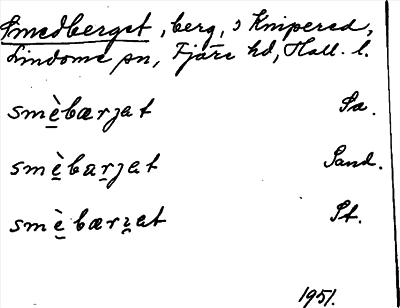 Smedberget, berg, i Knipered,
Lindome sn, Fjäre hd, Hall. l.
smè̱bærjat Sa.
smè̱ba̱ṟjat Sand.
smè̱bærẕat St.
1951.